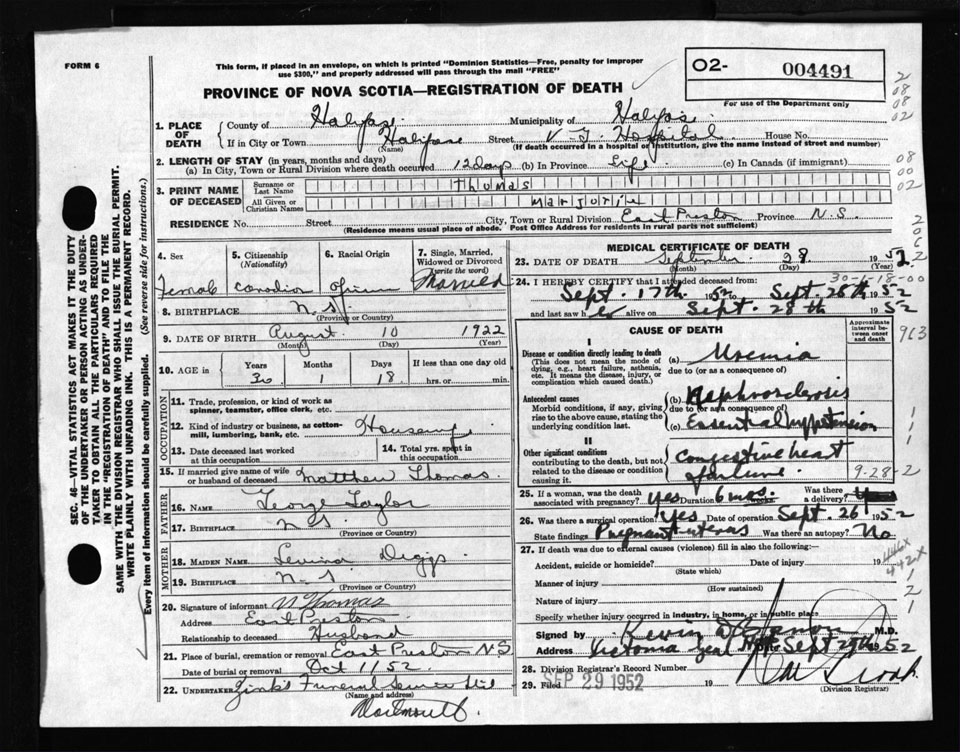 FORM 6
This form, if placed in an envelope, on which is printed "Dominion Statistics—Free, penalty for improper
use $300," and properly addressed will pass through the mail "FREE"
O2- 004491
For use of the Department only
PROVINCE OF NOVA SCOTIA—REGISTRATION OF DEATH
2
08
08
02
1. PLACE OF DEATH
County of Halifax Municipality of Halifax
If in City or Town Halifax Street V. G. Hospital House No.
(Name) (If death occurred in a hospital or institution, give the name instead of street and number)
2. LENGTH OF STAY (in years, months and days)
(a) In City, Town or Rural Division where death occurred 12 days (b) In Province Life (c) In Canada (if immigrant)
08
00
02
3. PRINT NAME OF DECEASED
Surname or Last Name Thomas
All Given or Christian Names Marjorie
RESIDENCE No. Street City, Town or Rural Division East Preston Province N.S.
(Residence means usual place of abode. Post Office Address for residents in rural parts not sufficient)
SEC. 4E—VITAL STATISTICS ACT MAKES IT THE DUTY
OF THE UNDERTAKER OR PERSON ACTING AS UNDER-
TAKER TO OBTAIN ALL THE PARTICULARS REQUIRED
IN THE "REGISTRATION OF DEATH" AND TO FILE THE
SAME WITH THE DIVISION REGISTRAR WHO SHALL ISSUE THE BURIAL PERMIT.
WRITE PLAINLY WITH UNFADING INK. THIS IS A PERMANENT RECORD.
Every item of information should be carefully supplied. (See reverse side for instructions.)
4. Sex
Female
5. Citizenship
(Nationality)
Canadian
6. Racial Origin
7. Single, Married,
Widowed or Divorced
(write the word)
Married
8. BIRTHPLACE N.S.
(Province or Country)
9. DATE OF BIRTH August 10 1922
(Month) (Day) (Year)
10. AGE in Years Months Days If less than one day old
30 1 18 hrs. or min.
OCCUPATION
11. Trade, profession, or kind of work as
spinner, teamster, office clerk, etc.
12. Kind of industry or business, as cotton-
mill, lumbering, bank, etc. Housewife
13. Date deceased last worked
at this occupation
14. Total yrs. spent in
this occupation
15. If married give name of wife
or husband of deceased Matthew Thomas
FATHER
16. Name George Taylor
17. Birthplace N.S.
(Province or Country)
MOTHER
18. MAIDEN NAME Diggs
19. BIRTHPLACE N.S.
(Province or Country)
20. Signature of informant M Thomas
Address East Preston
Relationship to deceased Husband
21. Place of burial, cremation or removal East Preston N.S
Date of burial or removal Oct 1 1952
22. UNDERTAKER Zink's Funeral Service Ltd
(Name and address)
Dartmouth.
MEDICAL CERTIFICATE OF DEATH
23. DATE OF DEATH September 28 1952
(Month) (Day) (Year)
30-1-18-00
24. I HEREBY CERTIFY that I attended deceased from:
Sept. 17th 1952 to Sept. 28th 1952
and last saw her alive on Sept. 28th 1952
CAUSE OF DEATH
Approximate interval between onset and death
963
I
Disease or condition directly leading to death
(This does not mean the mode of
dying, e.g., heart failure, asthenia,
etc. It means the disease, injury, or
complication which caused death.)
(a) Uremia
due to (or as a consequence of)
Antecedent causes
Morbid conditions, if any, giving
rise to the above cause, stating the
underlying condition last.
(b) Nephrosclerosis
due to (or as a consequence of)
(c) Essential hypertension
II
Other significant conditions
contributing to the death, but not
related to the disease or condition
causing it.
Congestive heart
failure
9-28-2
25. If a woman, was the death
associated with pregnancy? Yes Duration 6 mos. weeks Was there
a delivery?
26. Was there a surgical operation? Yes Date of operation Sept. 26 1952
State findings Pregnant uterus Was there an autopsy? No
27. If death was due to external causes (violence) fill in also the following:—
Accident, suicide or homicide? Date of injury 19
(State which)
446x
442x
Manner of injury
(How sustained)
Nature of injury
Specify whether injury occurred in industry, in home, or in public place
Signed by Kevin M.D.
Address Victoria Gen Hosp Sept 29th 1952
28. Division Registrar's Record Number
29. Filed SEP 29 1952 19
(Division Registrar)